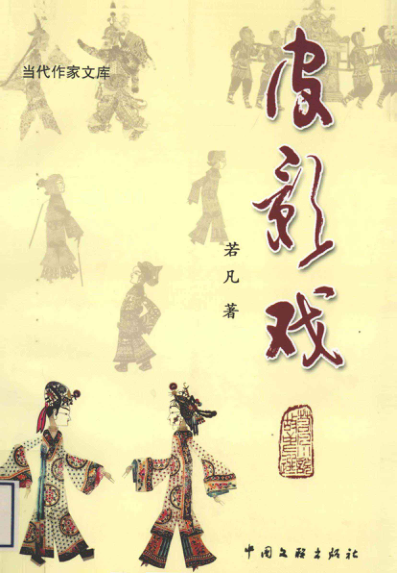 当代作家文库
皮影戏
若凡著
中国文联出版社